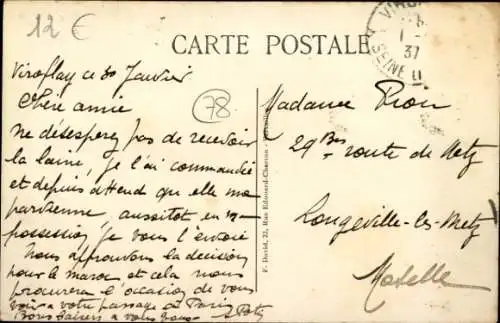 12 €
CARTE POSTALE
VIROF
1 -
37
SEINE
Viroflay ce 30 Janvier
Chère amie
78
ne désesperez pas de recevoir
la laine, je l'ai commandée
et depuis attend que elle me
parvienne, aussitot en
possession je vous l'envoie
Nous approuvons la décision
pour le maroc et cela nous
procurera l'occasion de vous
voir a votre passage à Paris
Bons baisers a vous
F. David, 22, Rue Edouard-Charton
Madame Pion
29 Bis route de Metz
Longeville-les-Metz
Moselle